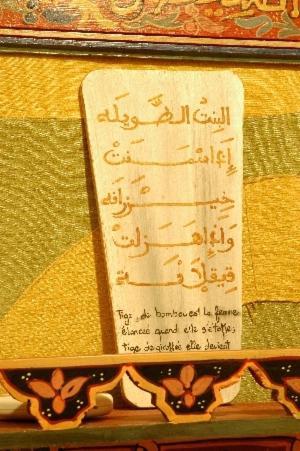 البنت الطويله
إدا سمنت
خيزرانه
وإدا هزلت
Tige de bambou est la femme
élancée quand elle s'étoffe,
tige de girofle elle devient